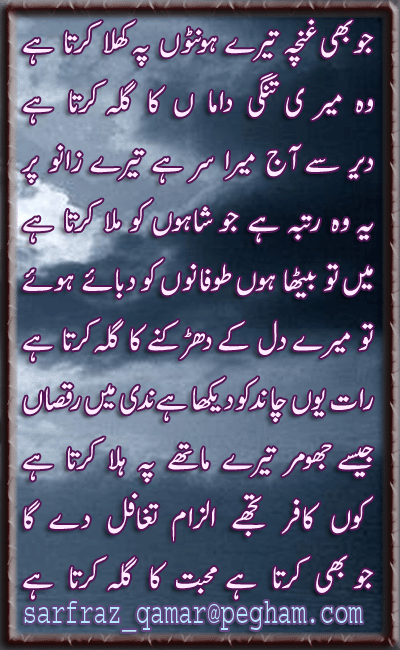 جو بھی غنچہ تیرے ہونٹوں پہ کھلا کرتا ہے
وہ میر ی تنگی داما ں کا گلہ کرتا ہے
دیر سے آج میرا سر ہے تیرے زانو پر
یہ وہ رتبہ ہے جو شاہوں کو ملا کرتا ہے
میں تو بیٹھا ہوں طوفانوں کو دبائے ہوئے
تو میرے دل کے دھڑکنے کا گلہ کرتا ہے
رات یوں چاند کو دیکھا ہے ندی میں رقصاں
جیسے جھومر تیرے ماتھے پہ ہلا کرتا ہے
کوں کافر تجھے الزام تغافل دے گا
جو بھی کرتا ہے محبت کا گلہ کرتا ہے
sarfraz_qamar@pegham.com